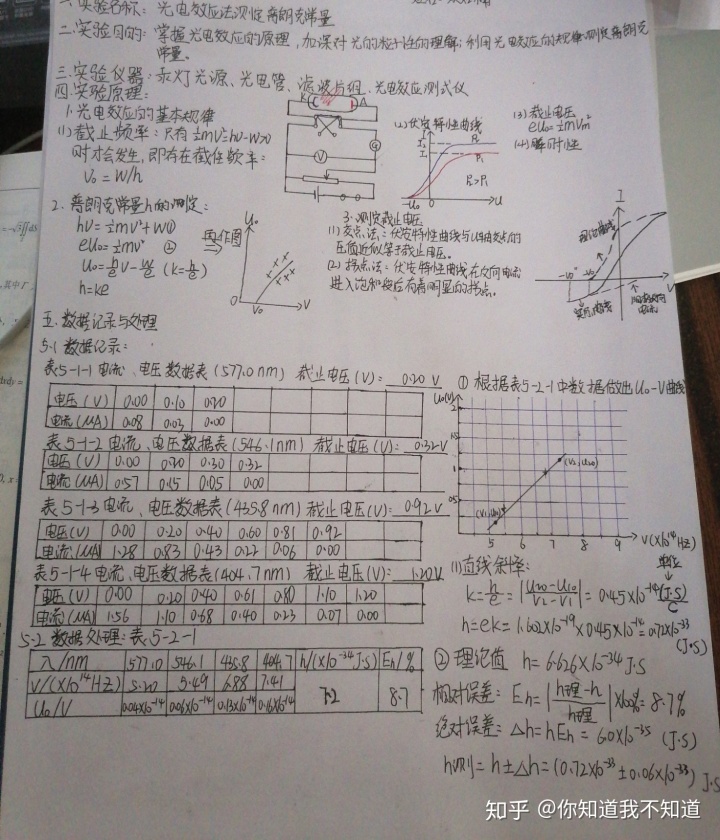 一.实验名称: 光电效应法测定普朗克常量
二.实验目的: 掌握光电效应的原理,加深对光的粒子性的理解;利用光电效应的规律测定普朗克
常量。
三.实验仪器: 汞灯光源、光电管、滤波片组、光电效应测试仪
四.实验原理:
1.光电效应的基本规律
(1)截止频率: 只有½mv²=hν-W>0
时才会发生,即存在截止频率:
ν₀=W/h
K
A
G
V
(2)伏安特性曲线
I
I₂
I₁
P₂
P₁
P₂>P₁
-U₀
0
U
(3)截止电压
eU₀=½mVm²
(4)瞬时性
2.普朗克常量h的测定:
hν=½mv²+W①
eU₀=½mv² ②
U₀=h/e ν-W/e (k=h/e)
h=ke
再作图
U₀
0
V₀
V
3.测定截止电压
(1)交点法:伏安特性曲线与U轴交点的
电压值近似等于截止电压。
(2)拐点法:伏安特性曲线在反向电流
进入饱和段后有着明显的拐点。
I
理论曲线
实际曲线
V
五.数据记录与处理
5.1数据记录:
表5-1-1电流、电压数据表(577.0nm) 截止电压(V): 0.20V
电压(V) 0.00 0.10 0.20
电流(μA) 0.08 0.03 0.00
表5-1-2电流、电压数据表(546.1nm) 截止电压(V): 0.32V
电压(V) 0.00 0.20 0.30 0.32
电流(μA) 0.57 0.15 0.05 0.00
表5-1-3电流、电压数据表(435.8nm)截止电压(V): 0.92V
电压(V) 0.00 0.20 0.40 0.60 0.81 0.92
电流(μA) 1.28 0.83 0.43 0.22 0.06 0.00
表5-1-4电流、电压数据表(404.7nm) 截止电压(V): 1.20V
电压(V) 0.00 0.20 0.40 0.61 0.80 1.10 1.20
电流(μA) 1.56 1.10 0.68 0.40 0.23 0.07 0.00
5.2数据处理:表5-2-1
λ/nm 577.0 546.1 435.8 404.7 h/(×10⁻³⁴J·S) En/%
ν/(×10¹⁴Hz) 5.20 5.49 6.88 7.41 7.2 8.7
U₀/V 0.04×10⁻¹⁴ 0.06×10⁻¹⁴ 0.13×10⁻¹⁴ 0.16×10⁻¹⁴
①根据表5-2-1中数据做出U₀-V曲线
U₀(V)
2
1.5
1
0.5
(V₁,U₁₀)
(V₂,U₂₀)
5 6 7 8 9
V(×10¹⁴Hz)
(1)直线斜率:
单位
k=h/e=|U₂₀-U₁₀/V₂-V₁|=0.45×10⁻¹⁴(J·S)/C
h=ek=1.602×10⁻¹⁹×0.45×10⁻¹⁴=0.72×10⁻³³
(J·S)
②理论值 h=6.626×10⁻³⁴J·S
相对误差: En=|h理-h/h理|×100%=8.7%
绝对误差: △h=hEn=6.0×10⁻³⁵ (J·S)
h测=h±△h=(0.72×10⁻³³±0.06×10⁻³³)J·S
知乎 @你知道我不知道